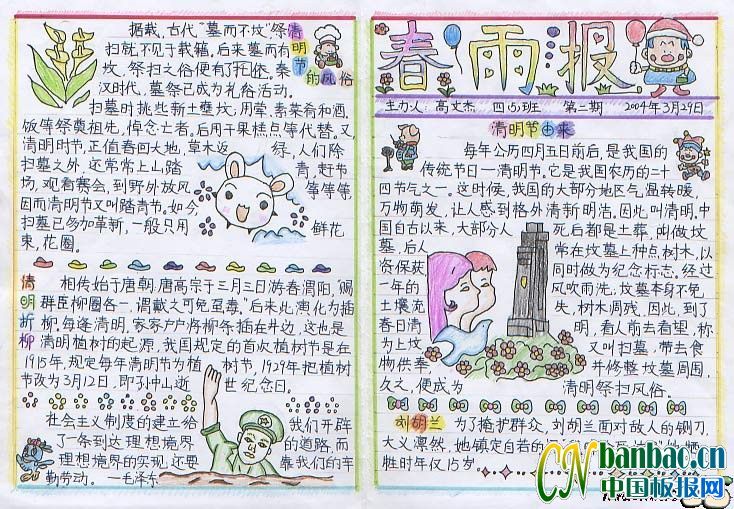 据载,古代“墓而不坟”祭
扫就不见于载籍,后来墓而有
坟,祭扫之俗便有了托依,秦
汉时代,墓祭已成为礼俗活动。
清明节的风俗
扫墓时挑些新土壅坟,用荤、素菜肴和酒、
饭等祭奠祖先,悼念亡者。后用干果糕点等代替。又
清明时节,正值春回大地,草木返绿,人们除
扫墓之外,还常常上山踏青,赶节
场,观看赛会,到野外放风筝等等,
因而清明节又叫踏青节。如今,
扫墓已多加革新,一般只用鲜花
束,花圈。
清明折柳
相传始于唐朝,唐高宗于三月三日游春渭阳,“赐
群臣柳圈各一,谓戴之可免虿毒。”后来此演化为插
柳,每逢清明,家家户户将柳条插在井边,这也是
清明植树的起源,我国规定的首次植树节是在
1915年,规定每年清明节为植树节,1929年把植树
节改为3月12日,即孙中山逝世纪念日。
社会主义制度的建立给我们开辟
了一条到达理想境界的道路,而
理想境界的实现,还要靠我们的辛
勤劳动。 —毛泽东
春雨报
主办人:高文杰 四(5)班 第二期 2009年3月29日
清明节由来
每年公历四月五日前后,是我国的
传统节日—清明节。它是我国农历的二十
四节气之一。这时候,我国的大部分地区气温转暖,
万物萌发,让人感到格外清新明洁。因此叫清明。中
国自古以来,大部分人死后都是土葬,叫做坟
墓,后人常在坟墓上种点树木,以
资保获同时做为纪念标志。经过
一年的风吹雨洗,坟墓本身不免
土壤流失,树木凋残,因此,到了
春日清明,看人前去看望,称
为上坟又叫扫墓,带去食
物供奉,并修整坟墓周围,
久之,便成为清明祭扫风俗。
刘胡兰
为了掩护群众,刘胡兰面对敌人的铡刀,
大义凛然,她镇定自若的
胜时年仅15岁。
CN banbao.cn
中国板报网